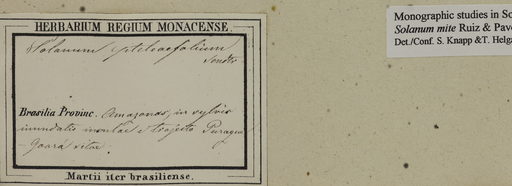 HERBARIUM REGIUM MONACENSE.
Solanum pteleaefolium
Sendtn
Brasilia Provinc. Amazonas, in sylvis
inundatis insulae e trajecto
sitae.
Martii iter brasiliense.
Monographic studies in So
Solanum mite Ruiz & Pav
Det./Conf. S. Knapp &T. Helga